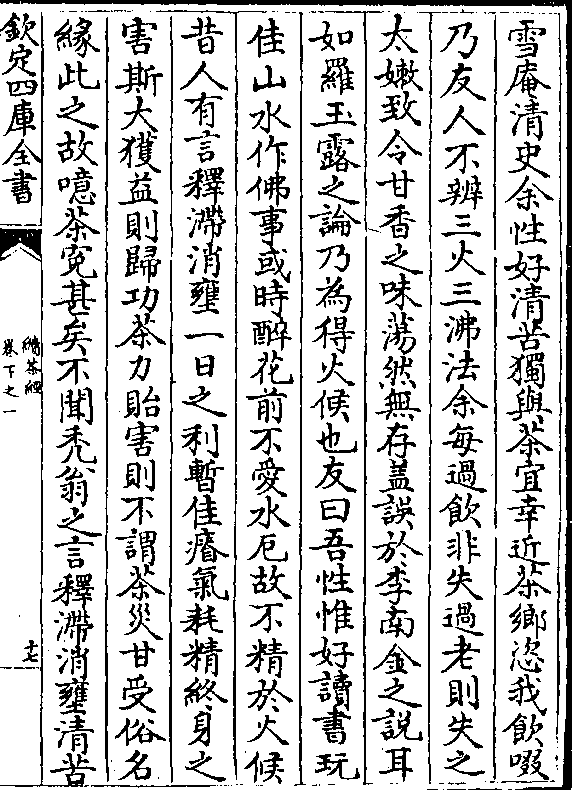 雪庵清史余性好清苦獨與茶宜幸近茶鄉恣我飲啜
乃友人不辨三火三沸法余每過飲非失過老則失之
太嫩致令甘香之味蕩然無存蓋誤於李南金之說耳
如羅玉露之論乃為得火候也友曰吾性惟好讀書玩
佳山水作佛事或時醉花前不愛水厄故不精於火候
昔人有言釋滯消壅一日之利暫佳瘠氣耗精終身之
害斯大獲益則歸功茶力貽害則不謂茶災甘受俗名
緣此之故噫茶寃甚矣不聞禿翁之言釋滯消壅清苦
欽定四庫全書
續茶經
卷下之一
十七